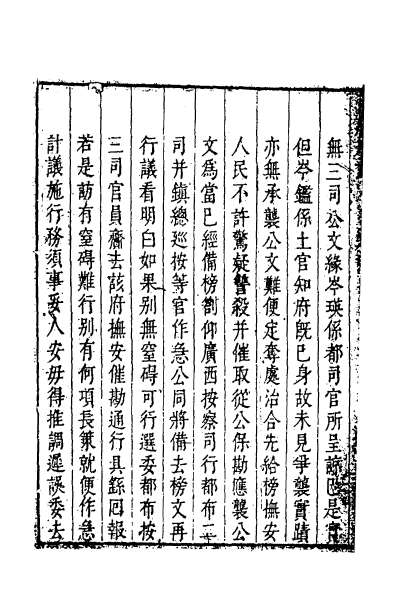 無三司公文緣岑瑛係都司官所呈諒已是實
但岑鑑係土官知府既已身故未見爭襲實蹟
亦無承襲公文難便定奪處治合先給榜撫安
人民不許驚疑讐殺并催取從公保勘應襲公
文爲當已經備榜劄仰廣西按察司行都布二
司并鎮總巡按等官作急公同將備去榜文再
行議看明白如果別無窒碍可行選委都布按
三司官員齎去該府撫安催勘通行具繇囘報
若是訪有窒碍難行别有何項長策就便作急
計議施行務須事妥人安毋得推調遲誤委去